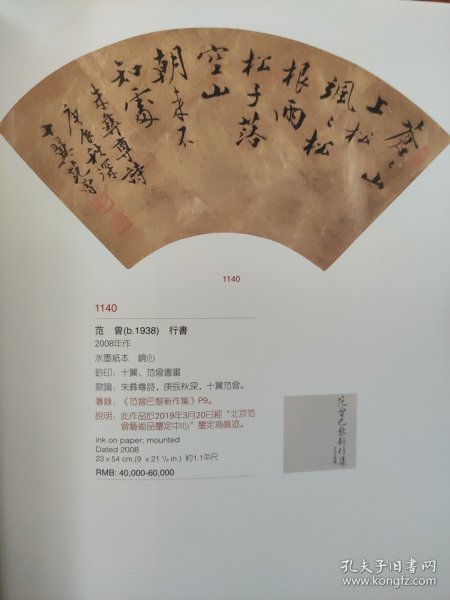 蒼〻山
上松
颯〻松
根雨
松子落
空山
朝来不
知處
朱彝尊詩
庚辰秋深
十翼范曾
1140
1140
范 曾(b.1938) 行書
2008年作
水墨紙本 鏡心
鈐印：十翼、范曾書畫
款識：朱彝尊詩，庚辰秋深，十翼范曾。
著錄：《范曾巴黎新作集》P9。
說明：此作品於2019年3月20日經“北京范
曾藝術品鑒定中心”鑒定爲眞迹。
ink on paper; mounted
Dated 2008
23×54 cm.(9 ×21 ¼ in.) 約1.1平尺
RMB: 40,000-60,000
范曾巴黎新作集
孔夫子旧书网
www.kongfz.com